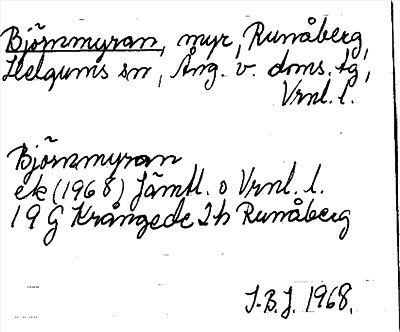 Björnmyran, myr, Runåberg,
Helgums sn, Ång. v. doms. tg,
Vrnl. l.
Björnmyran
ek (1968) Jämtl. o Vrnl. l.
19 G Krångede 2h Runåberg
J.B.J. 1968.